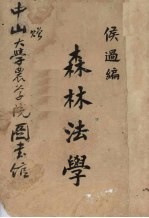 侯過編
森林法學
贈
中山大學農學院圖書館